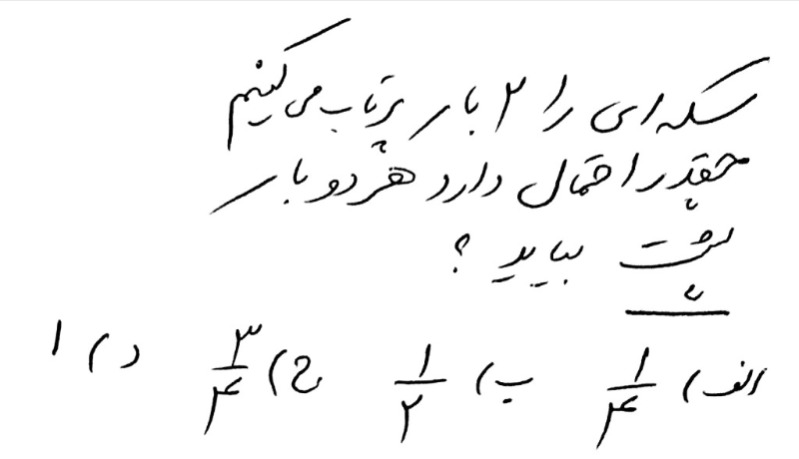 سکه ای را ۲ بار پرتاب می کنیم
چقدر احتمال دارد هر دو بار
پشت بیاید ؟
الف) ۱/۴ ب) ۱/۲ ج) ۳/۴ د) ۱